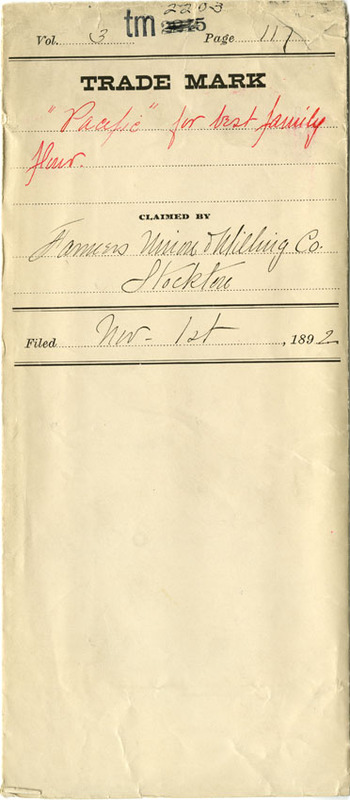 2203
tm
Vol. 3 Page 117
TRADE MARK
"Pacific" for best family
flour.
CLAIMED BY
Farmers Union & Milling Co.
Stockton
Filed Nov- 1st, 1892